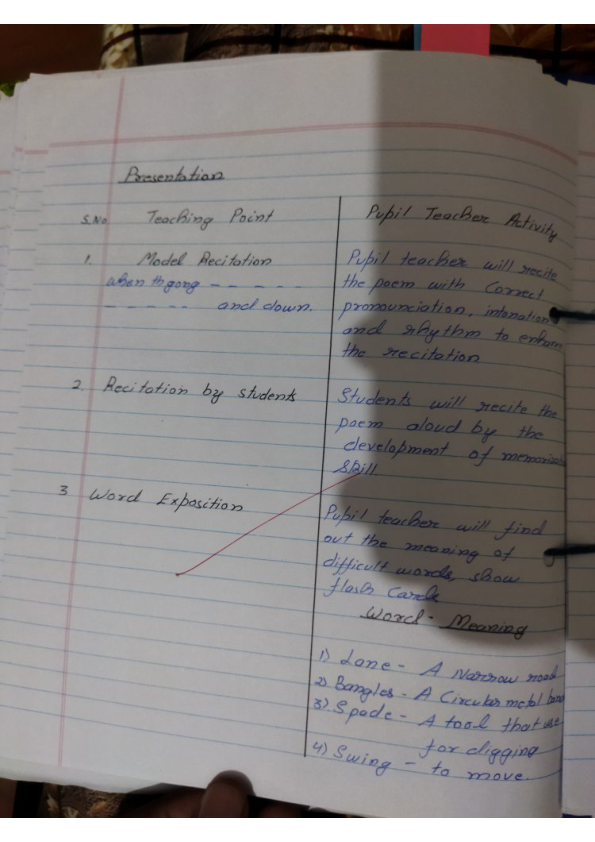 Presentation
S.No. Teaching Point Pupil Teacher Activity
1. Model Recitation Pupil teacher will recite
when th gong ------ the poem with correct
------ and down. pronounciation, intonation
and rhythm to enhan
the recitation
2. Recitation by students Students will recite the
poem aloud by the
development of memoriz
skill
3 Word Exposition Pupil teacher will find
out the meaning of
difficult words, show
flash Cards
Word - Meaning
1) Lane - A Narrow road
2) Bangles - A Circular metal band
3). Spade - A tool that use
for digging
4) Swing - to move.